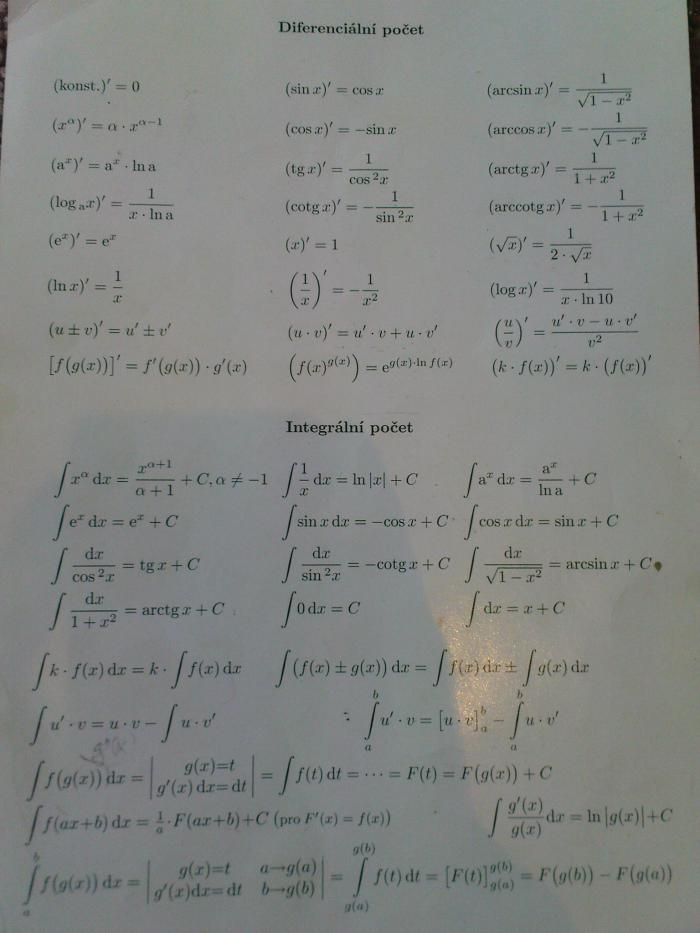 Diferenciální počet
(konst.)′ = 0 (sin x)′ = cos x (arcsin x)′ = 1/√(1 − x²)
(x^α)′ = α · x^(α−1) (cos x)′ = −sin x (arccos x)′ = −1/√(1 − x²)
(a^x)′ = a^x · ln a (tg x)′ = 1/cos²x (arctg x)′ = 1/(1 + x²)
(log_a x)′ = 1/(x · ln a) (cotg x)′ = −1/sin²x (arccotg x)′ = −1/(1 + x²)
(e^x)′ = e^x (x)′ = 1 (√x)′ = 1/(2 · √x)
(ln x)′ = 1/x (1/x)′ = −1/x² (log x)′ = 1/(x · ln 10)
(u ± v)′ = u′ ± v′ (u · v)′ = u′ · v + u · v′ (u/v)′ = (u′ · v − u · v′)/v²
[f(g(x))]′ = f′(g(x)) · g′(x) (f(x)^g(x)) = e^(g(x)·ln f(x)) (k · f(x))′ = k · (f(x))′
Integrální počet
∫x^α dx = x^(α+1)/(α + 1) + C, α ≠ −1 ∫1/x dx = ln |x| + C ∫a^x dx = a^x/ln a + C
∫e^x dx = e^x + C ∫sin x dx = −cos x + C ∫cos x dx = sin x + C
∫dx/cos²x = tg x + C ∫dx/sin²x = −cotg x + C ∫dx/√(1 − x²) = arcsin x + C
∫dx/(1 + x²) = arctg x + C ∫0 dx = C ∫dx = x + C
∫k · f(x) dx = k · ∫f(x) dx ∫(f(x) ± g(x)) dx = ∫f(x) dx ± ∫g(x) dx
∫u′ · v = u · v − ∫u · v′ ∫_a^b u′ · v = [u · v]_a^b − ∫_a^b u · v′
g'(x)
∫f(g(x)) dx = | g(x)=t g′(x) dx=dt | = ∫f(t) dt = ··· = F(t) = F(g(x)) + C
∫f(ax+b) dx = 1/a · F(ax+b)+C (pro F′(x) = f(x)) ∫g′(x)/g(x) dx = ln |g(x)|+C
∫_a^b f(g(x)) dx = | g(x)=t a→g(a) g′(x)dx=dt b→g(b) | = ∫_g(a)^g(b) f(t) dt = [F(t)]_g(a)^g(b) = F(g(b)) − F(g(a))